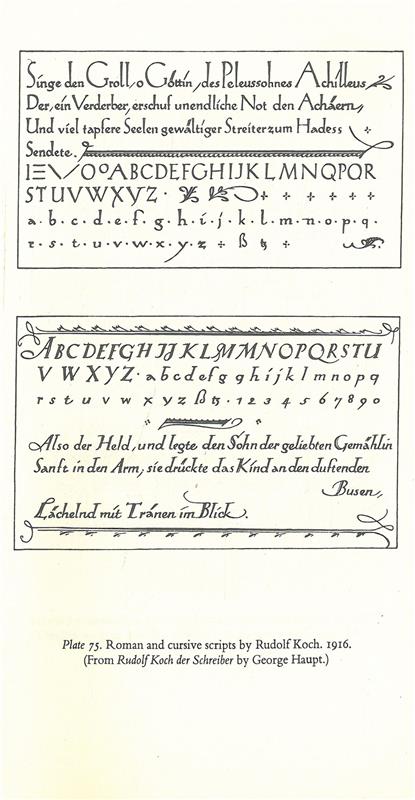 Singe den Groll, o Göttin, des Peleussohnes Achilleus
Der, ein Verderber, erschuf unendliche Not den Achäern,
Und viel tapfere Seelen gewaltiger Streiter zum Hadess
Sendete.
ABCDEFGHIJKLMNQPQR
STUVWXYZ
a.b.c.d.e.f.g.h.i.j.k.l.m.n.o.p.q.
r.s.t.u.v.w.x.y.z ß tz
ABCDEFGHIJKLMMNOPQRSTU
VWXYZ. abcdefg ghijklmnopq
rstuvwxyzß tz. 1234567890
Also der Held, und legte den Sohn der geliebten Gemählin
Sanft in den Arm, sie drückte das Kind an den duftenden
Busen,
Lächelnd mit Tränen im Blick.
Plate 75. Roman and cursive scripts by Rudolf Koch. 1916.
(From Rudolf Koch der Schreiber by George Haupt.)